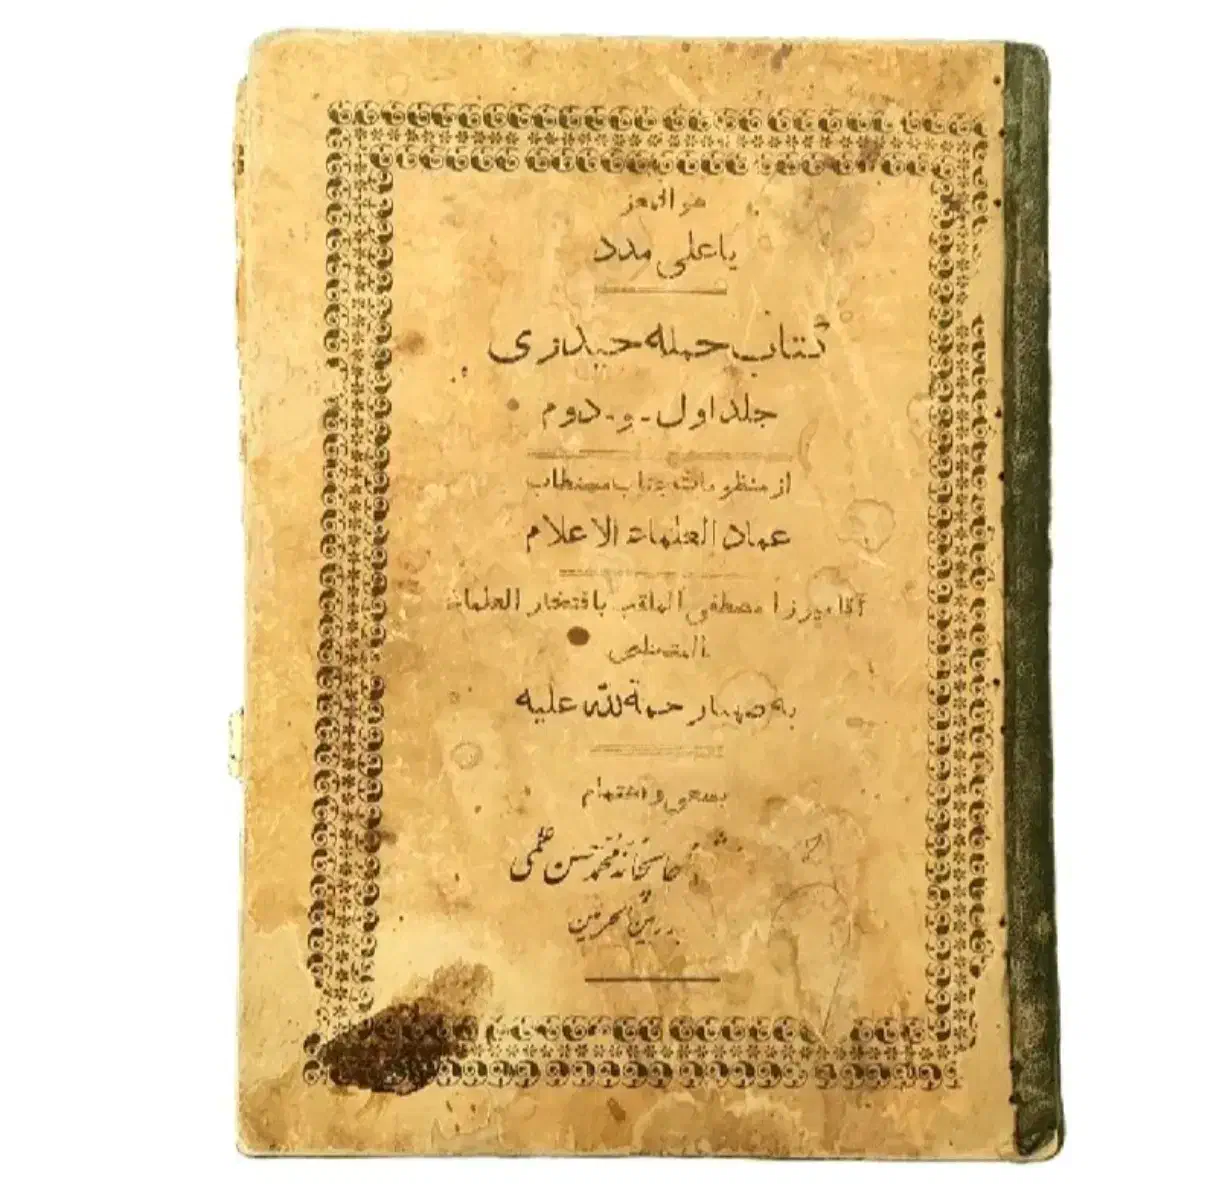 هو المعز
یا علی مدد
کتاب حمله حیدری
جلد اول - و - دوم
از منظومات جناب مستطاب
عماد العلماء الاعلام
آقا میرزا مصطفی الملقب بافتخار العلماء
المتخلص
به صهبا رحمة لله علیه
بسعی و اهتمام
چاپخانه محمد حسن علمی
بین الحرمین